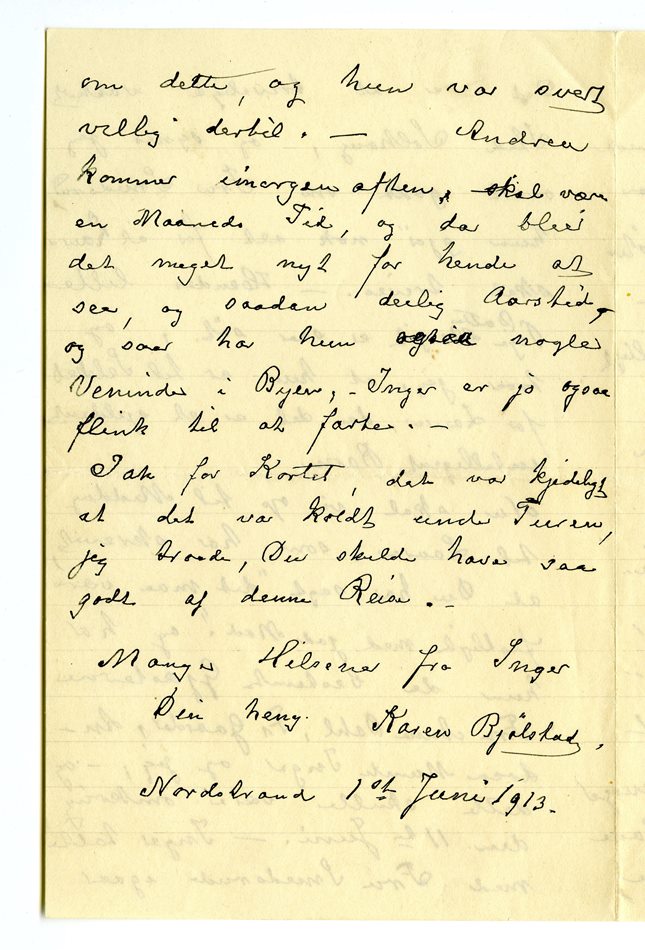 om dette, og hun var svært
villig dertil. — Andrea
kommer imorgen aften, skal være
en Maaneds Tid, og da bliver
det meget nyt for hende at
see, og saadan deilig Aarstid,
og saa har hun nogle
Veninder i Byen, – Inger er jo ogsaa
flink til at farte. —
Tak for Kortet, det var kjedeligt
at det var koldt under Turen,
jeg troede, Du skulde have saa
godt af denne Reise. –
Mange Hilsener fra Inger
Din heng. Karen Bjølstad,
Nordstrand 1st Juni 1913.